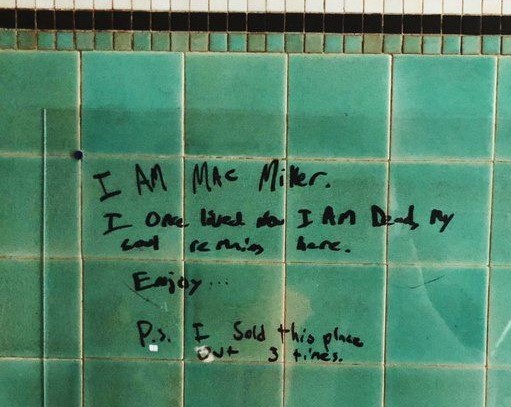 I AM MAC Miller.
I Once lived now I AM Dead, my
soul remains here.
Enjoy...
P.s. I Sold this place
out 3 times.